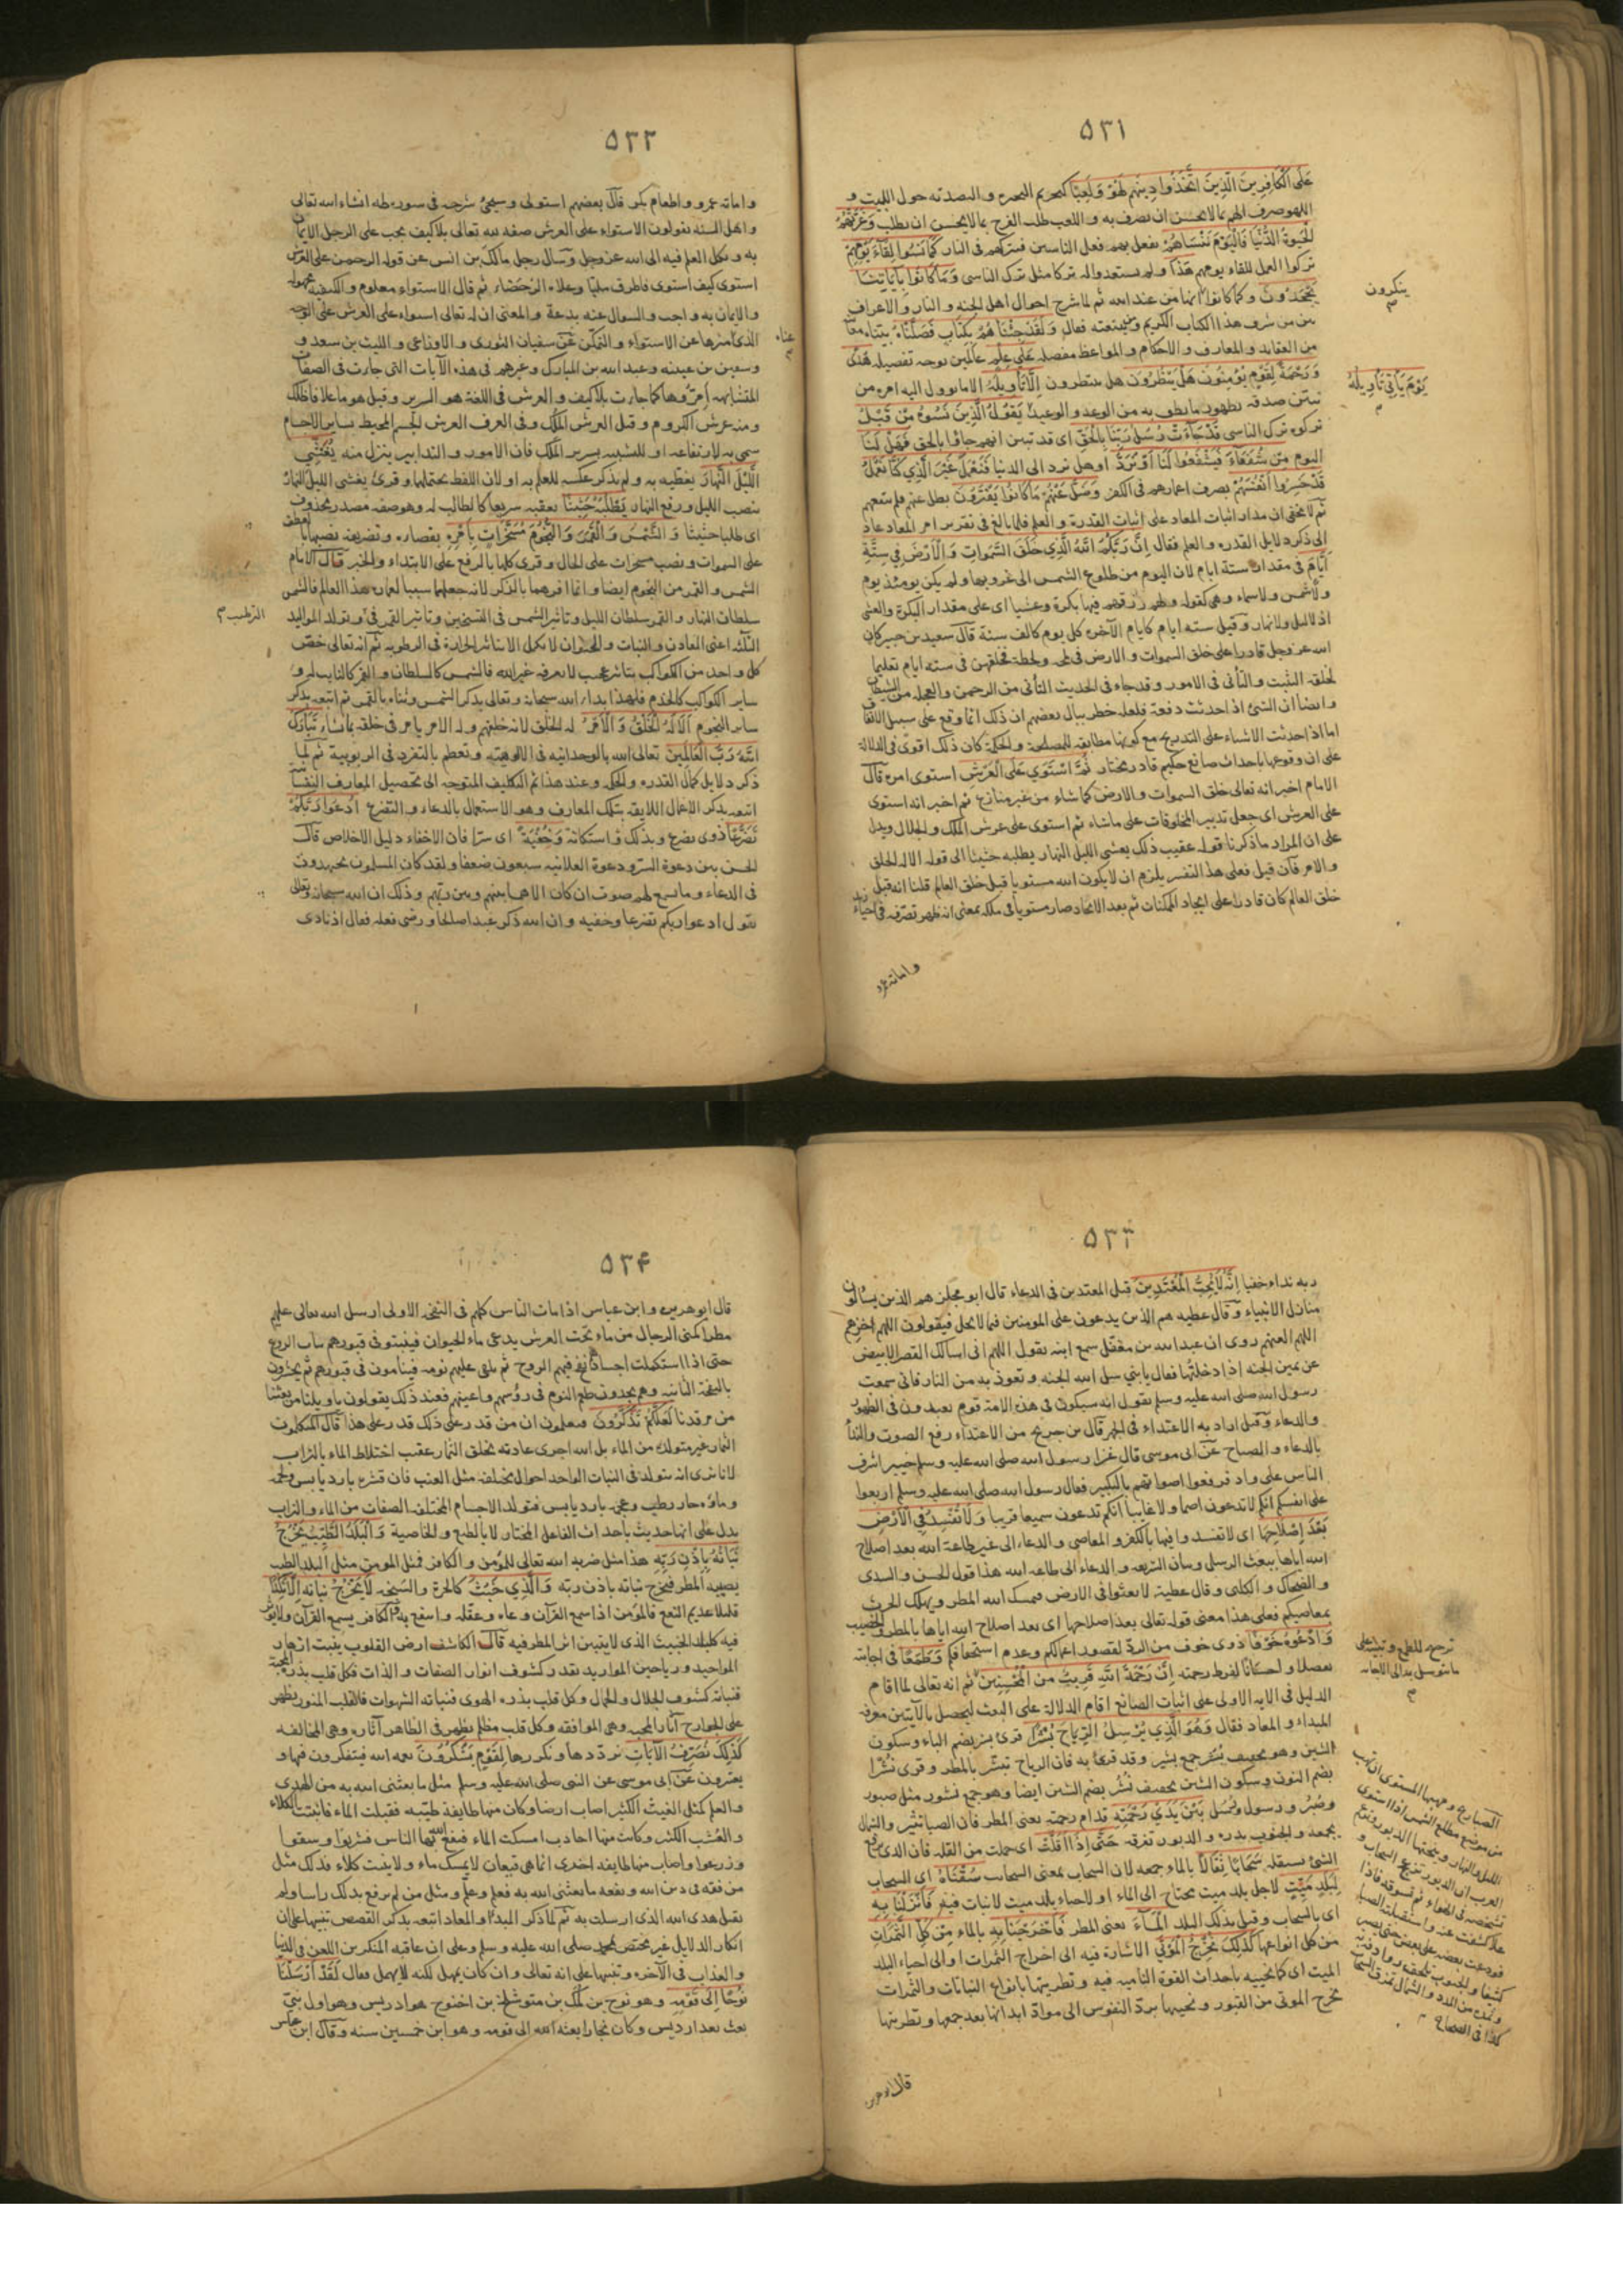 ٥٣١
عَلَى الْكَافِرِينَ الَّذِينَ اتَّخَذُوا دِينَهُمْ لَهْوًا وَلَعِبًا كتحريم البحيرة والتصديه حول البيت و
اللهو صرف الهم بما لا يحسن ان يصرف به واللعب طلب الفرح بما لا يحسن ان يطلب وَغَرَّتْهُمُ
الْحَيوةُ الدُّنْيَا فَالْيَوْمَ نَنْسَاهُمْ نفعل بهم فعل الناسين فنتركهم فى النار كَمَا نَسُوا لِقَاءَ يَوْمِهِمْ
تركوا العمل للقاء يومهم هَذَا ولم يستعدوا له تركا مثل ترك الناسى وَمَا كَانُوا بِآيَاتِنَا
يَجْحَدُونَ وكما كانوا انها من عند الله ثم لما شرح احوال اهل الجنه والنار والاعراف
ينكرون
بين من شرف هذا الكتاب الكريم ومنفعته فقال وَلَقَدْ جِئْنَاهُمْ بِكِتَابٍ فَصَّلْنَاهُ بينا معانيه
من العقايد والمعارف والاحكام والمواعظ مفصله عَلَى عِلْمٍ عالمين بوجه تفصيله هُدًى
وَرَحْمَةً لِقَوْمٍ يُؤْمِنُونَ هَلْ يَنْظُرُونَ هل ينتظرون إِلَّا تَأْوِيلَهُ الا ما يوول اليه امره من
يَوْمَ يَأْتِي تَأْوِيلُهُ
تبين صدقه بظهور ما نطق به من الوعد والوعيد يَقُولُ الَّذِينَ نَسُوهُ مِنْ قَبْلُ
تركوه ترك الناسى قَدْ جَاءَتْ رُسُلُ رَبِّنَا بِالْحَقِّ اى قد تبين انهم جاؤا بالحق فَهَلْ لَنَا
اليوم مِنْ شُفَعَاءَ فَيَشْفَعُوا لَنَا أَوْ نُرَدُّ او هل نرد الى الدنيا فَنَعْمَلَ غَيْرَ الَّذِي كُنَّا نَعْمَلُ
قَدْ خَسِرُوا أَنْفُسَهُمْ بصرف اعمارهم فى الكفر وَضَلَّ عَنْهُمْ مَا كَانُوا يَفْتَرُونَ بطل عنهم فلم ينفعهم
ثم لا يخفى ان مدار اثبات المعاد على اثبات القدرة والعلم فلما بالغ فى تقرير امر المعاد عاد
الى ذكر دلايل القدره والعلم فقال إِنَّ رَبَّكُمُ اللَّهُ الَّذِي خَلَقَ السَّمَوَاتِ وَالْأَرْضَ فِي سِتَّةِ
أَيَّامٍ فى مقدار ستة ايام لان اليوم من طلوع الشمس الى غروبها ولم يكن يومئذ يوم
ولا شمس ولا سماء وهى كقوله ولهم رزقهم فيها بكرة وعشيا اى على مقدار البكرة والعشى
اذ لا ليل ولا نهار وقيل سته ايام كايام الآخره كل يوم كالف سنة قال سعيد بن جبير كان
الله عز وجل قادرا على خلق السموات والارض فى لمحه ولحظة فخلقهن فى سته ايام تعليما
لخلقه التثبت والتأنى فى الامور وقد جاء فى الحديث التأنى من الرحمن والعجله من الشيطان
وايضا ان الشئ اذا حدث دفعة فلعله خطر ببال بعضهم ان ذلك انما وقع على سبيل الاتفاق
اما اذا حدثت الاشياء على التدريج مع كونها مطابقه للمصلحة والحكمة كان ذلك اقوى فى الدلالة
على ان وقوعها باحداث صانع حكيم قادر مختار ثُمَّ اسْتَوَى عَلَى الْعَرْشِ استوى امره قال
الامام اخبر انه تعالى خلق السموات والارض كما شاء من غير منازع ثم اخبر انه استوى
على العرش اى جعل تدبير المخلوقات على ما شاء ثم استوى على عرش الملك والجلال ويدل
على ان المراد ما ذكرنا قوله عقيب ذلك يغشى الليل النهار يطلبه حثيثا الى قوله الا له الخلق
والامر فان قيل فعلى هذا التفسير يلزم ان لا يكون الله مستويا قبل خلق العالم قلنا انه قبل
خلق العالم كان قادرا على ايجاد الممكنات ثم بعد الايجاد صار مستويا فى ملكه بمعنى انه ظهر تصرفه فى احياء زيد
واماتة عمرو
٥٣٢
واماته عمرو واطعام بكر قال بعضهم استولى وسيجئ شرحه فى سوره طه انشاء الله تعالى
واهل السنه يقولون الاستواء على العرش صفه لله تعالى بلا كيف يجب على الرجل الايمان
به ويكل العلم فيه الى الله عز وجل وسأل رجل مالك بن انس عن قوله الرحمن على العرش
استوى كيف استوى فاطرق مليا وعلاه الرحضاء ثم قال الاستواء معلوم والكيفيه مجهوله
والايمان به واجب والسوال عنه بدعة والمعنى ان له تعالى استواء على العرش على الوجه
الذى عناه منزها عن الاستواء والتمكن عن سفيان الثورى والاوزاعى والليث بن سعد و
وسفين بن عيينه وعبد الله بن المبارك وغيرهم فى هذه الآيات التى جاءت فى الصفات
المتشابهه امروها كما جاءت بلا كيف والعرش فى اللغة هو السرير وقيل هو ما علا فاظلك
ومنه عرش الكروم وقيل العرش الملك وفى العرف العرش الجسم المحيط بساير الاجسام
سمى به لارتفاعه او للتشبيه بسرير الملك فان الامور والتدابير ينزل منه يُغْشِي
اللَّيْلَ النَّهَارَ يغطيه به ولم يذكر عكسه للعلم به او لان اللفظ يحتملهما وقرئ يغشى الليل النهار
بنصب الليل ورفع النهار يَطْلُبُهُ حَثِيثًا يعقبه سريعا كالطالب له وهو صفه مصدر محذوف
اى طلبا حثيثا وَالشَّمْسَ وَالْقَمَرَ وَالنُّجُومَ مُسَخَّرَاتٍ بِأَمْرِهِ بقضاءه وتصريفه نصبها بالعطف
على السموات ونصب مسخرات على الحال وقرى كلها بالرفع على الابتداء والخبر قال الامام
الشمس والقمر من النجوم ايضا وانما افردهما بالذكر لانه جعلهما سببا لعمارة هذا العالم فالشمس
سلطان النهار والقمر سلطان الليل وتاثير الشمس فى التسخين وتاثير القمر فى وتولد المواليد
الترطيب
الثلثه اعنى المعادن والنبات والحيوان لا يكمل الا بتاثير الحرارة فى الرطوبه ثم انه تعالى خص
كل واحد من الكواكب بتاثير عجيب لا يعرفه غير الله فالشمس كالسلطان والقمر كالنايب له و
ساير الكواكب كالخدم فلهذا بداء الله سبحانه وتعالى بذكر الشمس وثناه بالقمر ثم اتبعه بذكر
ساير النجوم أَلَا لَهُ الْخَلْقُ وَالْأَمْرُ له الخلق لانه خلقهم وله الامر يامر فى خلقه بما شاء تَبَارَكَ
اللَّهُ رَبُّ الْعَالَمِينَ تعالى الله بالوحدانيه فى الالوهيه وتعظم بالتفرد فى الربوبية ثم لما
ذكر دلايل كمال القدره والحكمه وعند هذا تم التكليف المتوجه الى تحصيل المعارف النفسانيه
اتبعه بذكر الاعمال اللايقه بتلك المعارف وهو الاشتغال بالدعاء والتضرع ادْعُوا رَبَّكُمْ
تَضَرُّعًا ذوى تضرع وتذلك واستكانة وَخُفْيَةً اى سرا فان الاخفاء دليل الاخلاص قال
الحسن بين دعوة السر ودعوة العلانيه سبعون ضعفا ولقد كان المسلمون يجتهدون
فى الدعاء وما يسمع لهم صوت ان كان الا همسا بينهم وبين ربهم وذلك ان الله سبحانه وتعالى
يقول ادعوا ربكم تضرعا وخفيه وان الله ذكر عبدا صالحا ورضى فعله فقال اذ نادى
٥٣٣
ربه نداء خفيا إِنَّهُ لَا يُحِبُّ الْمُعْتَدِينَ قيل المعتدين فى الدعاء قال ابو مجلز هم الذين يسالون
منازل الانبياء وقال عطيه هم الذين يدعون على المومنين فيما لا يحل فيقولون اللهم اخزهم
اللهم العنهم روى ان عبد الله بن مغفل سمع ابنه يقول اللهم انى اسالك القصر الابيض
عن يمين الجنه اذا دخلتها فقال يا بنى سل الله الجنه وتعوذ به من النار فانى سمعت
رسول الله صلى الله عليه وسلم يقول انه سيكون فى هذه الامة قوم يعتدون فى الطهور
والدعاء وقيل اراد به الاعتداء فى الجهر قال بن جريج من الاعتداء رفع الصوت والنداء
بالدعاء والصياح عن ابى موسى قال غزا رسول الله صلى الله عليه وسلم خيبر اشرف
الناس على واد فرفعوا اصواتهم بالتكبير فقال رسول الله صلى الله عليه وسلم اربعوا
على انفسكم انكم لا تدعون اصما ولا غايبا انكم تدعون سميعا قريبا وَلَا تُفْسِدُوا فِي الْأَرْضِ
بَعْدَ إِصْلَاحِهَا اى لا تفسدوا فيها بالكفر والمعاصى والدعاء الى غير طاعة الله بعد اصلاح
الله اياها ببعث الرسل وبيان الشريعه والدعاء الى طاعه الله هذا قول الحسن والسدى
والضحاك والكلبى وقال عطية لا تعثوا فى الارض فيمسك الله المطر ويهلك الحرث
بمعاصيكم فعلى هذا معنى قوله تعالى بعد اصلاحها اى بعد اصلاح الله اياها بالمطر والخصب
وَادْعُوهُ خَوْفًا ذوى خوف من الرد لقصور اعمالكم وعدم استحقاقكم وَطَمَعًا فى اجابته
تفضلا واحسانا لفرط رحمته إِنَّ رَحْمَةَ اللَّهِ قَرِيبٌ مِنَ الْمُحْسِنِينَ ثم انه تعالى لما اقام
ترجيح للطمع وتنبيه على
ما يتوسل به الى الاجابه
الدليل فى الايه الاولى على اثبات الصانع اقام الدلالة على البعث ليحصل بالآيتين معرفه
المبداء والمعاد فقال وَهُوَ الَّذِي يُرْسِلُ الرِّيَاحَ بُشْرًا قرئ بضم الباء وسكون
الشين وهو تخفيف بشر جمع بشير وقد قرئ به فان الرياح تبشر بالمطر وقرى نُشْرًا
بضم النون وسكون الشين تخفيف نُشُر بضم الشين ايضا وهو جمع نشور مثل صبور
وصُبُر ورسول ورسل بَيْنَ يَدَيْ رَحْمَتِهِ قدام رحمته يعنى المطر فان الصبا تثير والشمال
تجمعه والجنوب تدره والدبور تفرقه حَتَّى إِذَا أَقَلَّتْ اى حملت من القله فان الذى يرفع
الشئ يستقله سَحَابًا ثِقَالًا بالماء جمعه لان السحاب بمعنى السحايب سُقْنَاهُ اى السحاب
لِبَلَدٍ مَيِّتٍ لاجل بلد ميت محتاج الى الماء او لاحياء بلد ميت لا نبات فيه فَأَنْزَلْنَا بِهِ
اى بالسحاب وقيل بذلك البلد الْمَاءَ يعنى المطر فَأَخْرَجْنَا بِهِ بالماء مِنْ كُلِّ الثَّمَرَاتِ
من كل انواعها كَذَلِكَ نُخْرِجُ الْمَوْتَى الاشارة فيه الى اخراج الثمرات او الى احياء البلد
الميت اى كما نحييه باحداث القوة النامية فيه وتطريتها بانواع النباتات والثمرات
نخرج الموتى من القبور ونحييها برد النفوس الى مواد ابدانها بعد جمعها وتطريتها
الصبا ريح ومهبها المستوى ان تهب
من موضع مطلع الشمس اذا استوى
الليل والنهار ونيحتها الدبور وتزعم
العرب ان الدبور تزعج السحاب و
تشخصه فى الهواء ثم تسوقه فاذا
علا كشفت عنه واستقبلته الصبا
فوزعت بعضه على بعض حتى يصير
كسفا والجنوب تلحقه روادفه
وتمده من المدد والشمال تمزق السحاب
كذا فى الصحاح
قال ابو هريره
٥٣٤
قال ابو هريره وابن عباس اذا مات الناس كلهم فى النفخه الاولى ارسل الله تعالى عليهم
مطرا كمنى الرجال من ماء تحت العرش يدعى ماء الحيوان فينبتون فى قبورهم نبات الزرع
حتى اذا استكملت اجسادهم نفخ فيهم الروح ثم يلقى عليهم نومه فينامون فى قبورهم ثم يحشرون
بالنفخة الثانيه وهم يجدون طعم النوم فى رؤسهم واعينهم فعند ذلك يقولون يا ويلنا من بعثنا
من مرقدنا لَعَلَّكُمْ تَذَكَّرُونَ فتعلمون ان من قدر على ذلك قدر على هذا قال المتكلمون
الثمار غير متولده من الماء بل الله اجرى عادته بخلق الثمار عقيب اختلاط الماء بالتراب
لانا نرى انه يتولد فى النبات الواحد احوال مختلفه مثل العنب فان قشره بارد يابس ولحمه
وماؤه حار رطب وعجمه بارد يابس فتولد الاجسام المختلفه الصفات من الماء والتراب
يدل على انها حديث باحداث الفاعل المختار لا بالطبع والخاصية وَالْبَلَدُ الطَّيِّبُ يَخْرُجُ
نَبَاتُهُ بِإِذْنِ رَبِّهِ هذا مثل ضربه الله تعالى للمؤمن والكافر فمثل المومن مثل البلد الطيب
يصيبه المطر فيخرج نباته باذن ربه وَالَّذِي خَبُثَ كالحرة والسبخه لَا يَخْرُجُ نباته إِلَّا نَكِدًا
قليلا عديم النفع فالمؤمن اذا سمع القرآن وعاه وعقله وانتفع به والكافر يسمع القرآن ولا يوثر
فيه كالبلد الخبيث الذى لا يتبين اثر المطر فيه قال الكاشف ارض القلوب ينبت ازهار
المواجيد ورياحين المواريد بقدر كشوف انوار الصفات والذات فكل قلب بذره المحبة
فنباته كشوف الجلال والجمال وكل قلب بذره الهوى فنباته الشهوات فالقلب المنور يظهر
على الجوارح آثار المحبه وهى الموافقه وكل قلب مظلم يظهر فى الظاهر آثاره وهى المخالفه
كَذَلِكَ نُصَرِّفُ الْآيَاتِ نرددها ونكررها لِقَوْمٍ يَشْكُرُونَ نعمه الله فيتفكرون فيها و
يعتبرون عن ابى موسى عن النبى صلى الله عليه وسلم مثل ما بعثنى الله به من الهدى
والعلم كمثل الغيث الكثير اصاب ارضا وكان منها طايفة طيبه فقبلت الماء فانبتت الكلاء
والعُشب الكثير وكانت منها اجادب امسكت الماء فنفع الله بها الناس فشربوا وسقوا
وزرعوا واصاب منها طايفه اخرى انما هى قيعان لا يمسك ماء ولا ينبت كلاء فذلك مثل
من فقه فى دين الله ونفعه ما بعثنى الله به فعلم وعلّم ومثل من لم يرفع بذلك راسا ولم
يقبل هدى الله الذى ارسلت به ثم لما ذكر المبدا والمعاد اتبعه بذكر القصص تنبيها على ان
انكار الدلايل غير مختص بمحمد صلى الله عليه وسلم وعلى ان عاقبه المنكرين اللعن فى الدنيا
والعذاب فى الآخره وتنبيها على انه تعالى وان كان يمهل لكنه لا يهمل فقال لَقَدْ أَرْسَلْنَا
نُوحًا إِلَى قَوْمِهِ وهو نوح بن لمك بن متوشلخ بن اخنوخ هو ادريس وهو اول نبى
بعث بعد ادريس وكان نجارا بعثه الله الى قومه وهو ابن خمسين سنه وقال ابن عباس